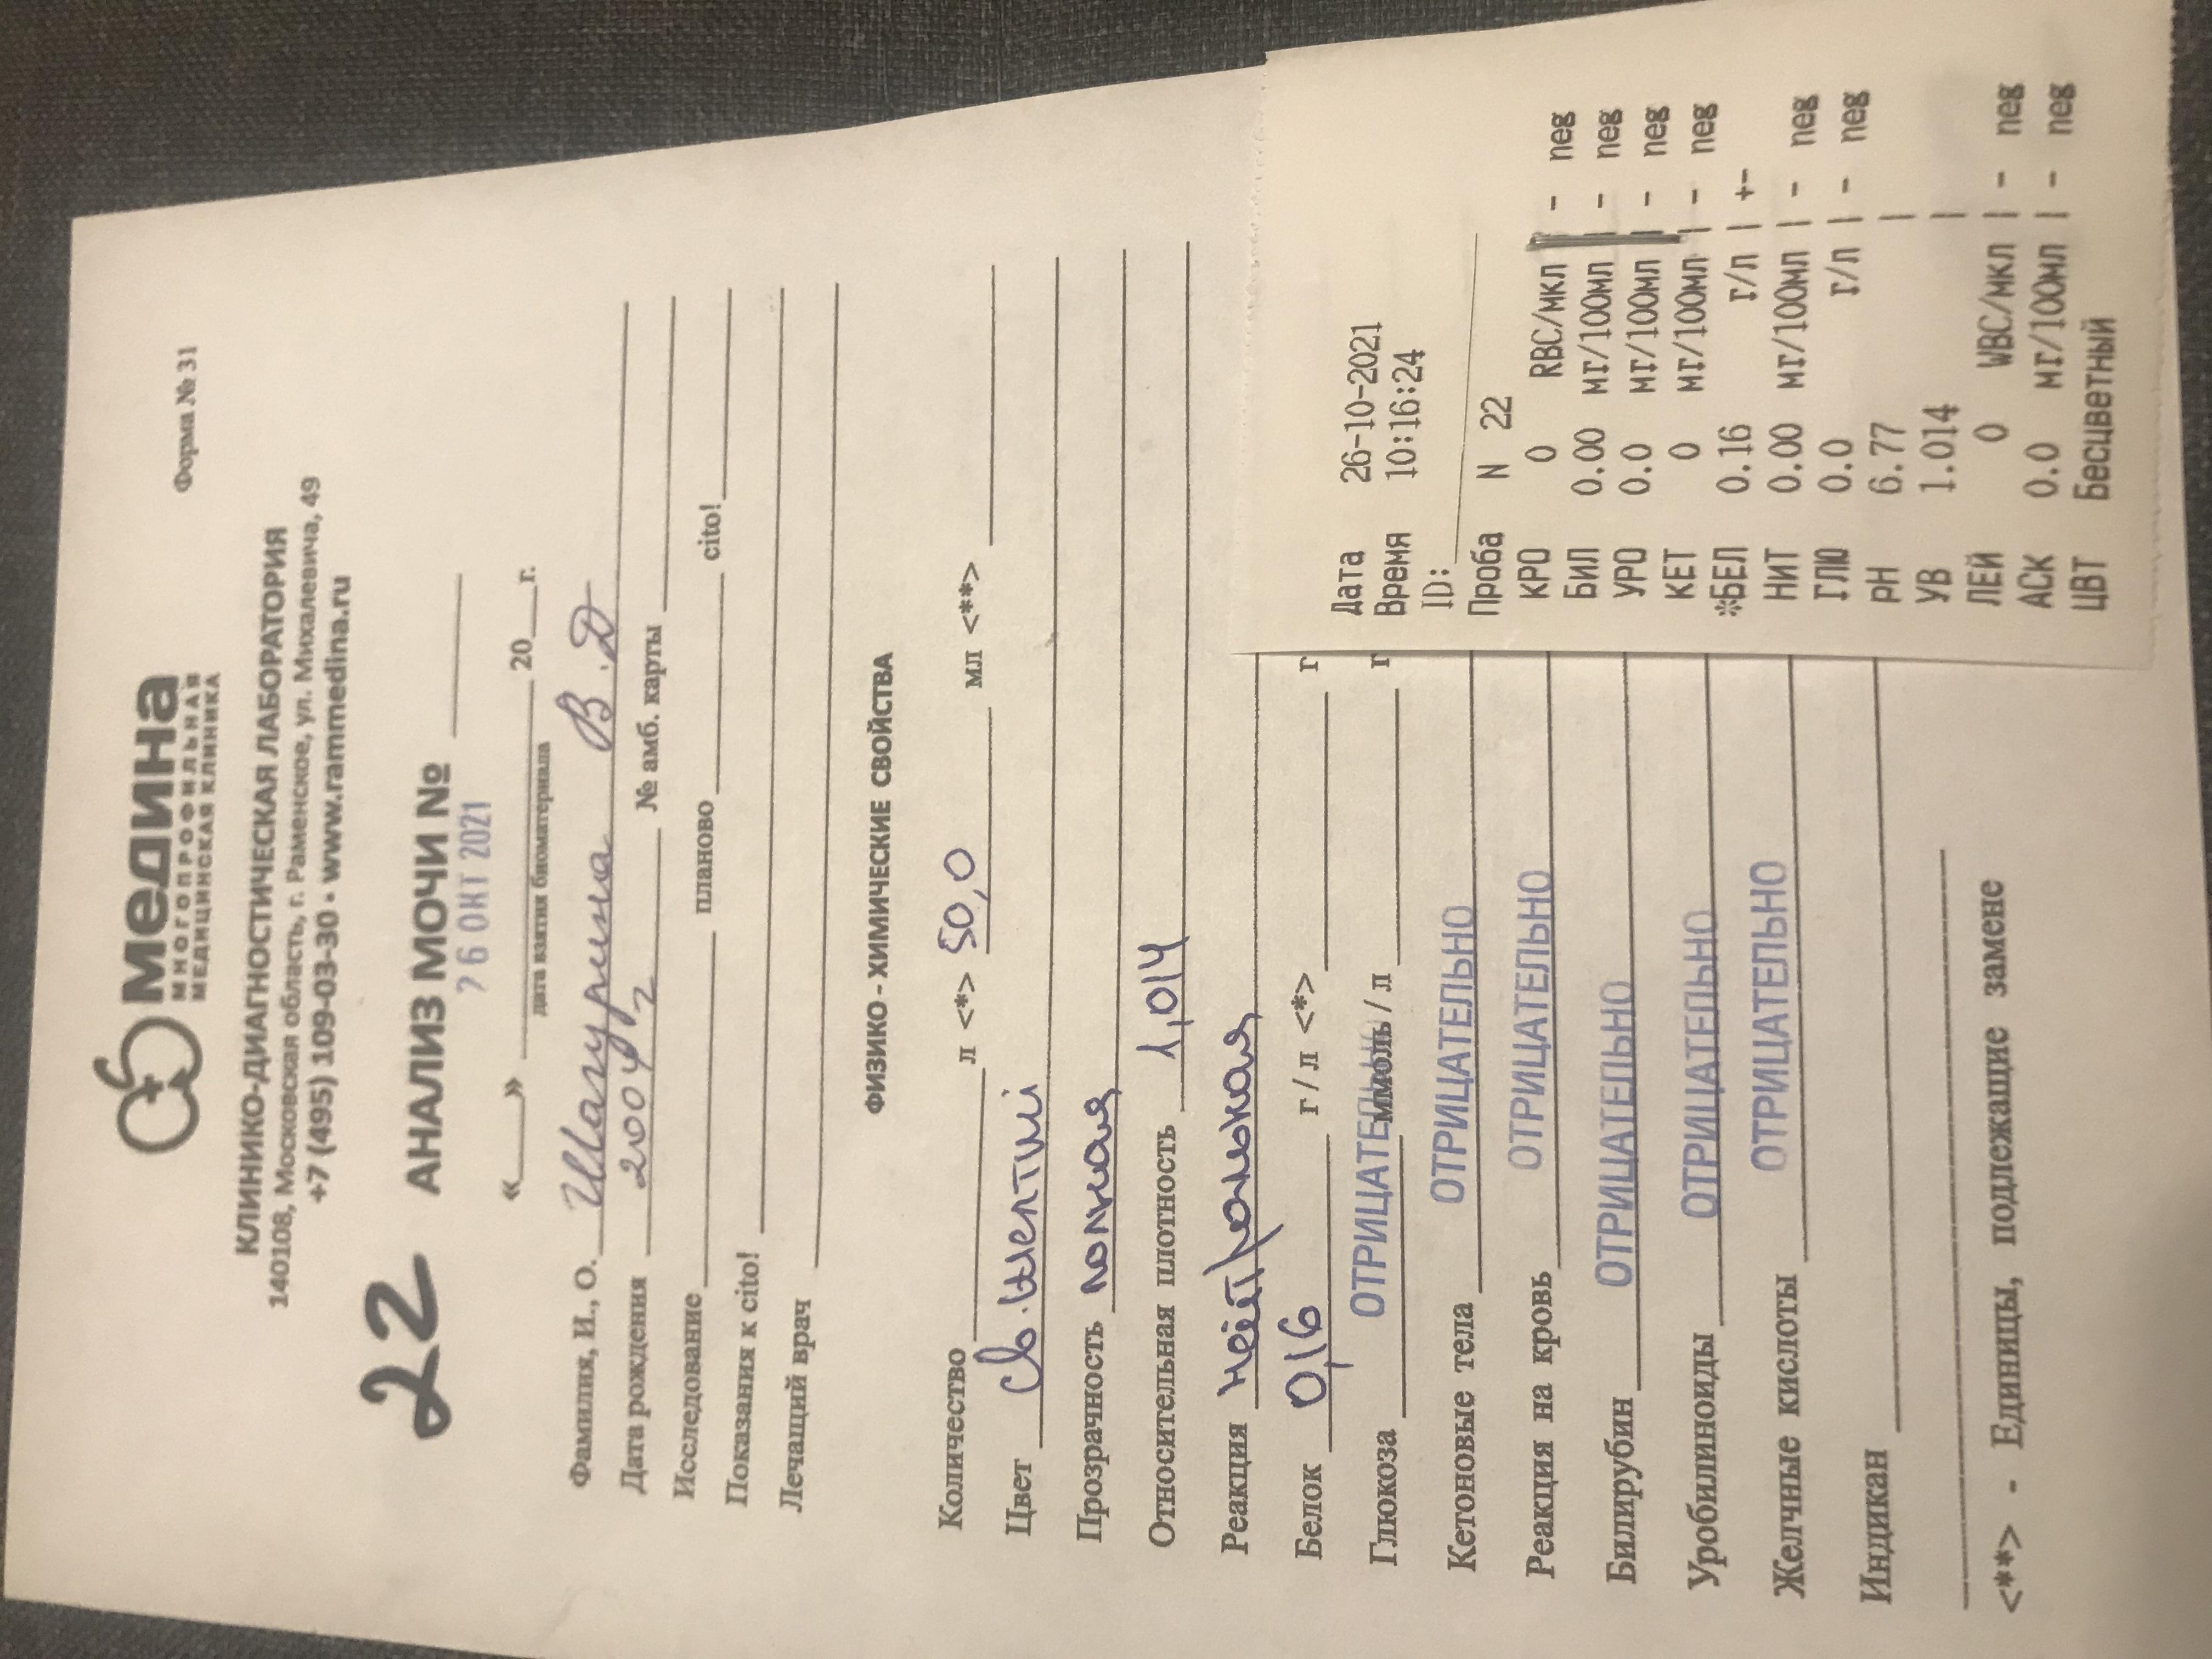 медина
МНОГОПРОФИЛЬНАЯ
МЕДИЦИНСКАЯ КЛИНИКА
Форма № 31
КЛИНИКО-ДИАГНОСТИЧЕСКАЯ ЛАБОРАТОРИЯ
140108, Московская область, г. Раменское, ул. Михалевича, 49
+7 (495) 109-03-30 • www.rammedina.ru
22 АНАЛИЗ МОЧИ № ____
26 ОКТ 2021
«___» ____________ 20___г.
дата взятия биоматериала
Фамилия, И., О. Шагурина В.Д
Дата рождения 2004г № амб. карты
Исследование ____ планово ____ cito! ____
Показания к cito!
Лечащий врач
ФИЗИКО - ХИМИЧЕСКИЕ СВОЙСТВА
Количество ____ л <*> 50,0 мл <**> ____
Цвет св.желтый
Прозрачность полная
Относительная плотность 1,014
Реакция нейтральная
Белок 0,16 г / л <*> ____ г
Глюкоза ОТРИЦАТЕЛЬНО ммоль / л ____ г
Кетоновые тела ОТРИЦАТЕЛЬНО
Реакция на кровь ОТРИЦАТЕЛЬНО
Билирубин ОТРИЦАТЕЛЬНО
Уробилиноиды ОТРИЦАТЕЛЬНО
Желчные кислоты ОТРИЦАТЕЛЬНО
Индикан
<**> - Единицы, подлежащие замене
Дата 26-10-2021
Время 10:16:24
ID:
Проба N 22
КРО 0 RBC/мкл | - neg
БИЛ 0.00 мг/100мл | - neg
УРО 0.0 мг/100мл | - neg
КЕТ 0 мг/100мл | - neg
*БЕЛ 0.16 г/л | +-
НИТ 0.00 мг/100мл | - neg
ГЛЮ 0.0 г/л | - neg
pH 6.77 |
УВ 1.014 |
ЛЕЙ 0 WBC/мкл | - neg
АСК 0.0 мг/100мл | - neg
ЦВТ Бесцветный